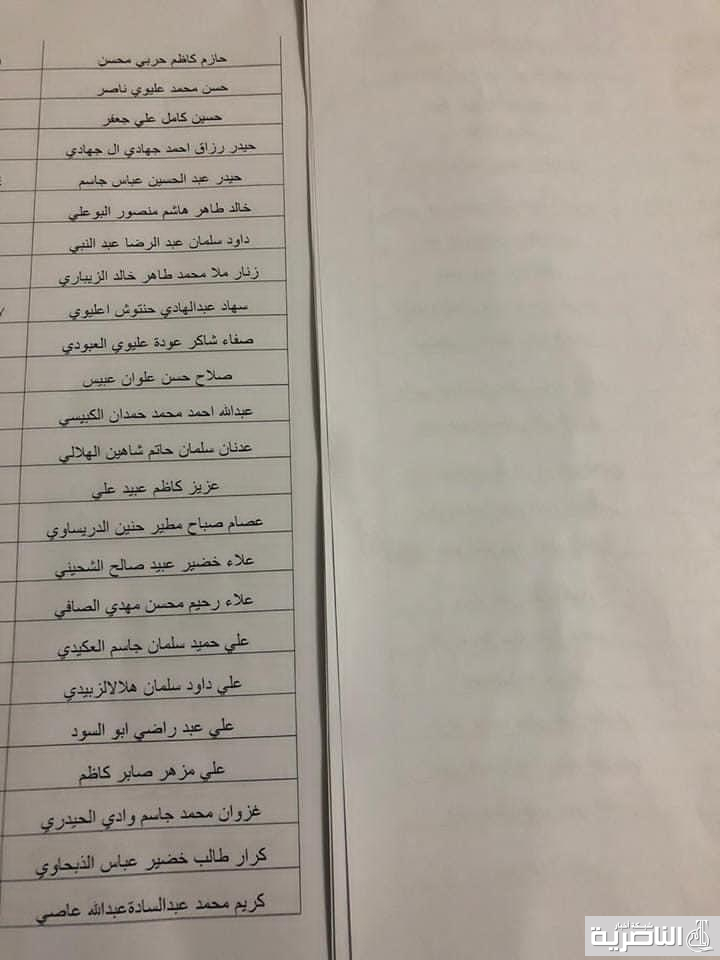 حازم كاظم حربي محسن
حسن محمد عليوي ناصر
حسين كامل علي جعفر
حيدر رزاق احمد جهادي ال جهادي
حيدر عبد الحسين عباس جاسم
خالد طاهر هاشم منصور البوعلي
داود سلمان عبد الرضا عبد النبي
زنار ملا محمد طاهر خالد الزيباري
سهاد عبدالهادي حنتوش اعليوي
صفاء شاكر عودة عليوي العبودي
صلاح حسن علوان عبيس
عبدالله احمد محمد حمدان الكبيسي
عدنان سلمان حاتم شاهين الهلالي
عزيز كاظم عبيد علي
عصام صباح مطير حنين الدريساوي
علاء خضير عبيد صالح الشحيني
علاء رحيم محسن مهدي الصافي
علي حميد سلمان جاسم العكيدي
علي داود سلمان هلالالزبيدي
علي عبد راضي ابو السود
علي مزهر صابر كاظم
غزوان محمد جاسم وادي الحيدري
كرار طالب خضير عباس الذبحاوي
كريم محمد عبدالسادةعبدالله عاصي
شبكة اخبار
الناصرية